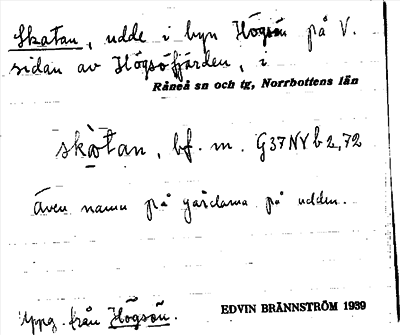 Skatan, udde i byn Högsön på V.
sidan av Högsöfjärden, i
Råneå sn och tg, Norrbottens län
skàtan, bf. m. G37NVb2,72
Även namn på gårdarna på udden.
Uppg. från Högsön.
EDVIN BRÄNNSTRÖM 1939